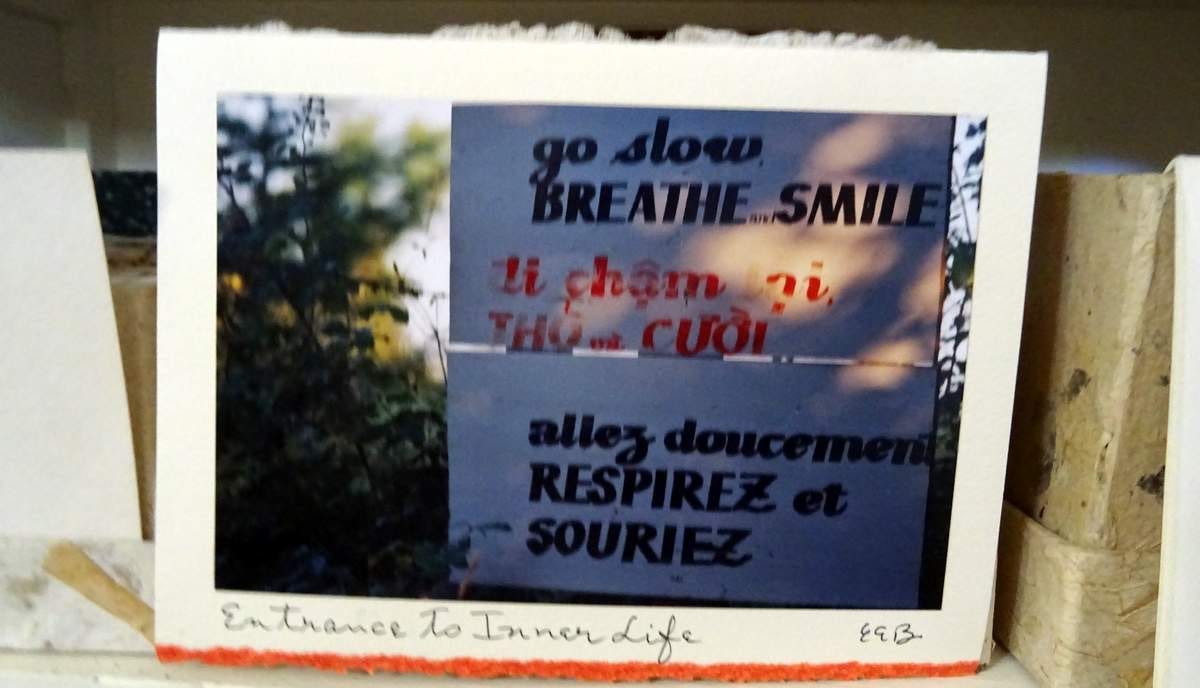 go slow,
BREATHE and SMILE
đi chậm lại,
THỞ và CƯỜI
allez doucement
RESPIREZ et
SOURIEZ
Entrance to Inner Life
EGB